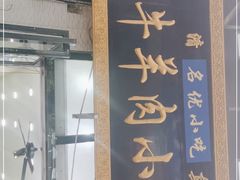 清
名优小吃
牛羊肉小